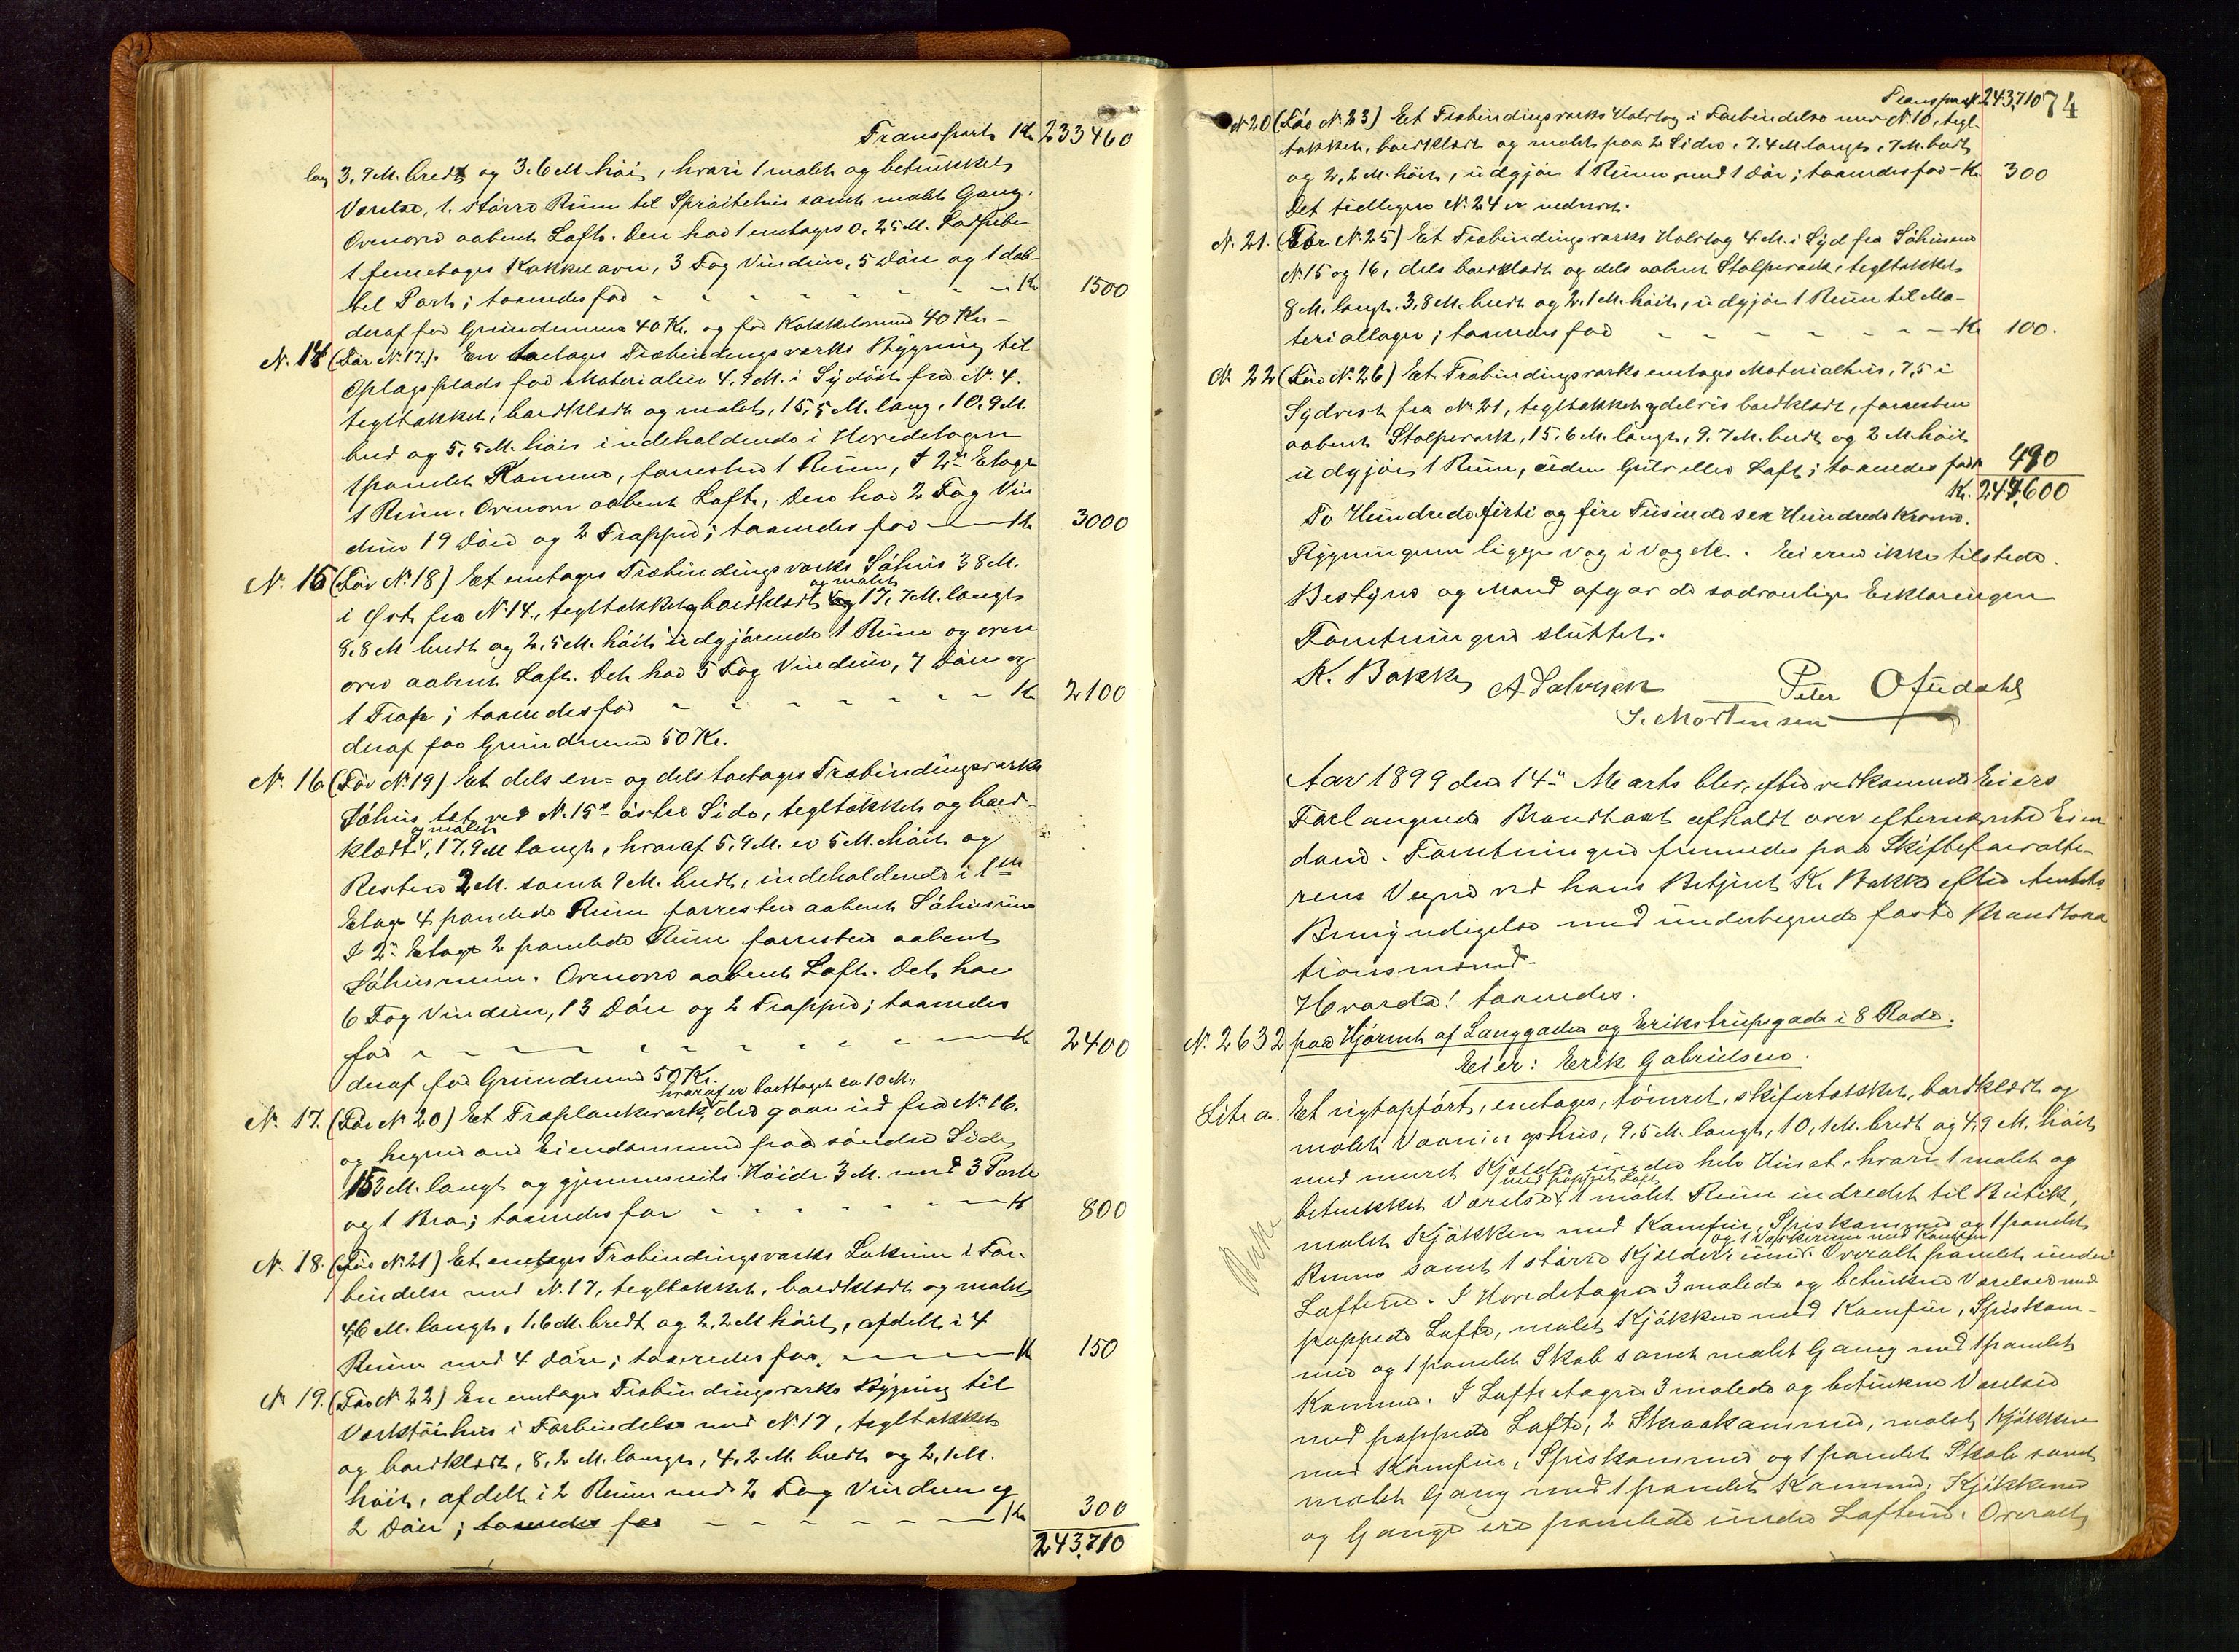 Transport Kr 233460
lang 3,9 M. bredt og 3.6 M. høi, hvori 1 malet og betrukket
Værelse, 1 større Rum til Sprøitehus samt malet Gang.
Ovenover aabent Loft. Den har 1 entages 0,25 M.
1 femetages Kakkelovn, 3 Fag Vinduer, 5 Døre og 1 dob-
bel Port; taxeredes for - - - Kr 1500
deraf for Grundmuren 40 Kr. og for Kakkelovnene 40 Kr. -
N. 14 (Før N. 17). En toetages Træbindingsværks Bygning til
Oplagsplads for Materialier 4,9 M. i Sydøst fra N. 4.
tegltækket, bordklædt og malet, 15,5 M. lang, 10,9 M.
bred og 5,5 M. høi indeholdende i Hovedetagen
1 panelet Kammer, forresten 1 Rum, I 2den Etage
1 Rum. Ovenover aabent Loft. Den har 2 Fag Vin
duer 19 Døre og 2 Trapper; taxeredes for — Kr 3000
N. 15 (Før N. 18) Et entages Træbindingsværks Søhus 38 M.
og malet
i Øst fra N. 14, tegltækket og bordklædt 17,7 M. langt
8,8 M bredt og 2,5 M. høit udgjørende 1 Rum og oven
over aabent Loft. Det har 5 Fag Vinduer, 7 Døre og
1 Trap; taxeredes for - - - Kr 2100
deraf for Grundmuren 50 Kr.
N. 16. (Før N. 19) Et dels en- og dels toetages Træbindingsværks
Søhus tæt ved N. 15s østre Side, tegltækket og bord-
og malet
klædt, 17,9 M langt, hvoraf 5,9 M. er 5 M. høit og
Resten 2 M. samt 9 M. bredt, indeholdende i 1ste
Etage 4 panelede Rum forresten aabent Søhusrum
I 2den Etage 2 panelede Rum forresten aabent
Søhusrum. Ovenover aabent Loft. Det har
6 Fag Vinduer, 13 Døre og 2 Trapper; taxeredes
for - - - Kr 2400
deraf for Grundmuren 50 Kr.
hvoraf er borttaget ca 10 M.
N. 17. (Før N. 20) Et Træplankeværk, der gaar ud fra N. 16.
og hegner om Eiendommen paa søndre Side
153 M. langt og gjennemsnits Høide 3 M. med 3 Porte
og 1 Bro; taxeredes for - - - Kr 800
N. 18. (Før N. 21) Et entages Træbindingsværks Lokum i For-
bindelse med N. 17, tegltækket, bordklædt og malet
4,6 M. langt, 1.6 M. bredt og 2,2 M høit, afdelt i 4
Rum med 4 Døre; taxeredes for — Kr 150
N. 19. (Før N. 22) En entages Træbindingsværks Bygning til
Værktøihus i Forbindelse med N. 17, tegltækket
og bordklædt, 8,2 M. langt, 4,2 M. bredt og 2,1 M.
høit, afdelt i 2 Rum med 2 Fag Vinduer og
2 Døre; taxeredes for - - - Kr 300
243,710
Transport 243,710 74
N 20 (Før N. 23) Et Træbindingsværks Halvtag i Forbindelse med N. 10, tegl-
tækket, bordklædt og malet paa 2 Sider, 7,4 M langt, 7 M. bredt
og 2,2 M. høit, udgjør 1 Rum med 1 Dør; taxeredes for - Kr. 300
Det tidligere N. 24 er nedrevet.
N. 21. (Før N. 25) Et Træbindingsværks Halvtag 4 M. i Syd fra Søhusene
N. 15 og 16, dels bordklædt og dels aabent Stolpeværk, tegltækket
8 M. langt. 3,8 M. bredt og 2.1 M. høit, udgjør 1 Rum til Ma-
teriallager; taxeredes for - - - Kr 100.
N. 22 (Før N. 26) Et Træbindingsværks entages Materialhus, 7,5 i
Sydvest fra N. 21, tegltækket og delvis bordklædt, forresten
aabent Stolpeværk, 15.6 M. langt, 9.7 M. bredt og 2 M. høit
udgjør 1 Rum, uden Gulv eller Loft; taxeredes for Kr 490
Kr. 244,600
To Hundrede firti og fire Tusinde sex Hundrede Kroner.
Bygningerne ligger væg i væg . Eieren ikke tilstede.
Bestyrer og Mænd afgav de sædvanlige Erklæringer
Forretningen sluttet.
K. Bakke A Salvesen Peter Ofudahl
S. Mortensen
Aar 1899 den 14de Marts blev, efter vedkommende Eiers
Forlangende Brandtaxt afholdt over efternævnte Eien
domme. Forretningen fremmedes paa Skifteforvalte-
rens Vegne ved hans Betjent K. Bakke efter Amtets
Bemyndigelse med undertegnede faste Brandtaxa
tionsmænd.
Hvorda! taxeredes.
N. 2632 paa Hjørnet af Langgaden og Erikstrupsgade i 8 Rode.
Eier: Erik Gabrielsen.
Litr a. Et nyt opført, entages, tømret, skifertækket, bordklædt og
malet Vaaningshus, 9,5 M. langt, 10,1 M. bredt og 4,9 M. høit
med muret Kjælder under hele Huset, hvori 1 malet og
med pappet Loft
betrukket Værelse, 1 malet Rum indredet til Butik,
malet Kjøkken med Komfur, Spiskammer og 1 panelet
og 1 Vaskerum med Komfur
Rum samt 1 større Kjælderrum. Overalt panelet under
Lofterne. I Hovedetagen 3 malede og betrukne Værelser med
pappede Lofte, malet Kjøkken med Komfur, Spiskam-
mer og 1 panelet Skab samt malet Gang med 1 panelet
Kammer. I Loftsetagen 3 malede og betrukne Værelser
med pappede Lofte, 2 Skraakammer, malet Kjøkken
med Komfur, Spiskammer og 1 panelet Skab samt
malet Gang med 1 panelet Kammer. Kjøkkener
og Gange ere panelede under Lofterne. Overalt